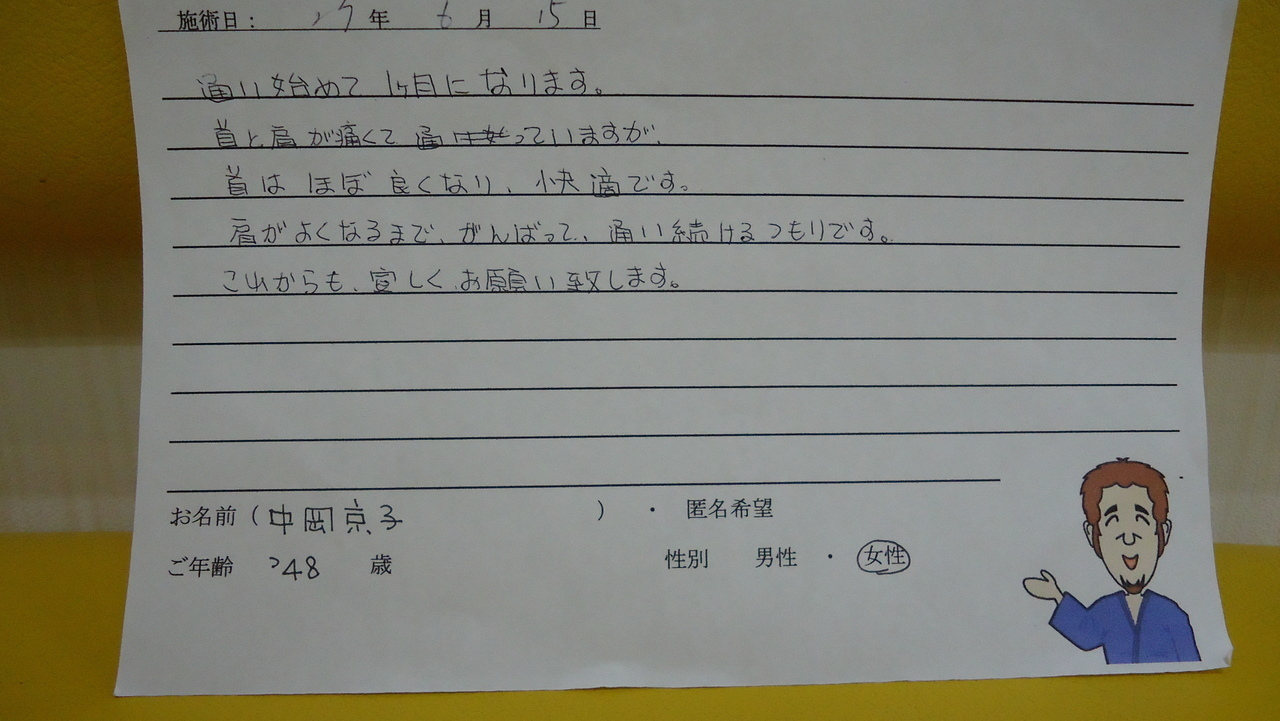 施術日： 27年 6月 15日
通い始めて 1ヶ月目になります。
首と肩が痛くて 通っていますが、
首は ほぼ 良くなり、快適です。
肩がよくなるまで、がんばって、通い続けるつもりです。
これからも、宜しくお願い致します。
お名前（中岡京子 ）・ 匿名希望
ご年齢 48 歳 性別 男性 ・ 女性